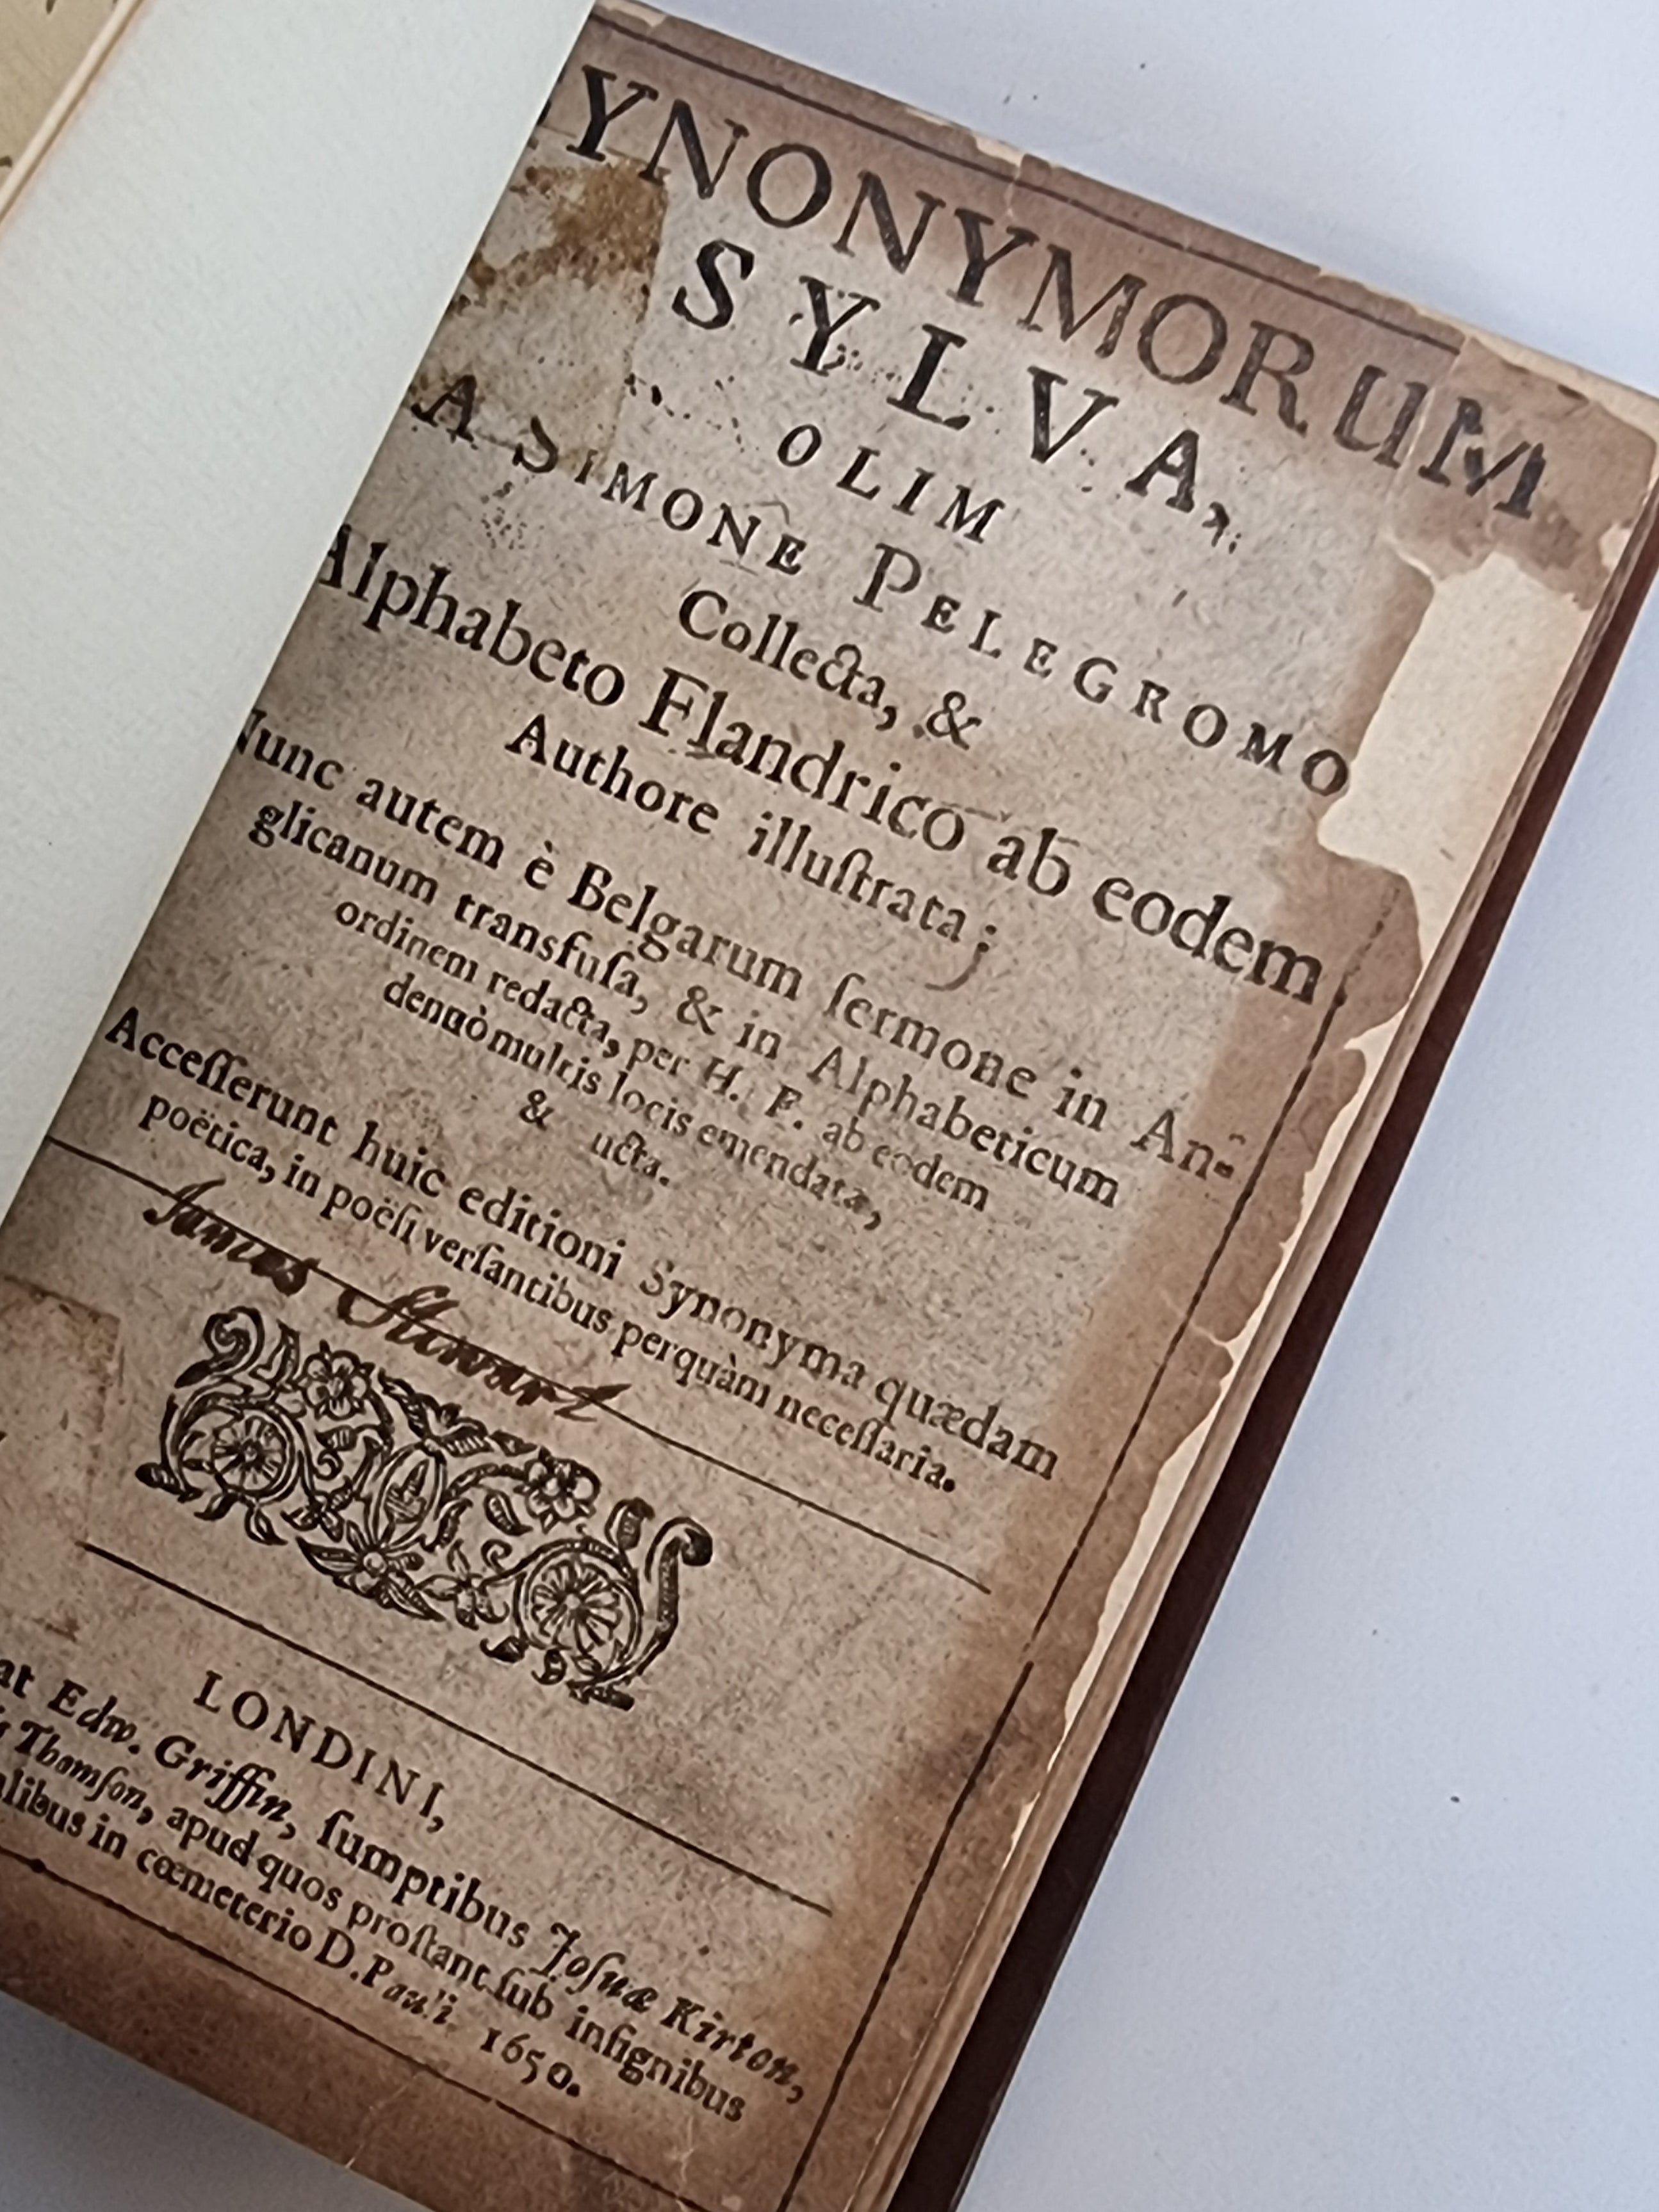 SYNONYMORUM
SYLVA,
OLIM
A SIMONE PELEGROMO
Collecta, &
Alphabeto Flandrico ab eodem
Authore illuſtrata;
Nunc autem è Belgarum ſermone in An-
glicanum transfuſa, & in Alphabeticum
ordinem redacta, per H. F. ab eodem
denuò multis locis emendata,
& ucta.
Acceſſerunt huic editioni Synonyma quædam
poëtica, in poëſi verſantibus perquàm neceſſaria.
James Stewart
LONDINI,
at Edw. Griffin, ſumptibus Joſuæ Kirton,
Thomſon, apud quos proſtant ſub inſignibus
alibus in cœmeterio D. Pauli 1650.